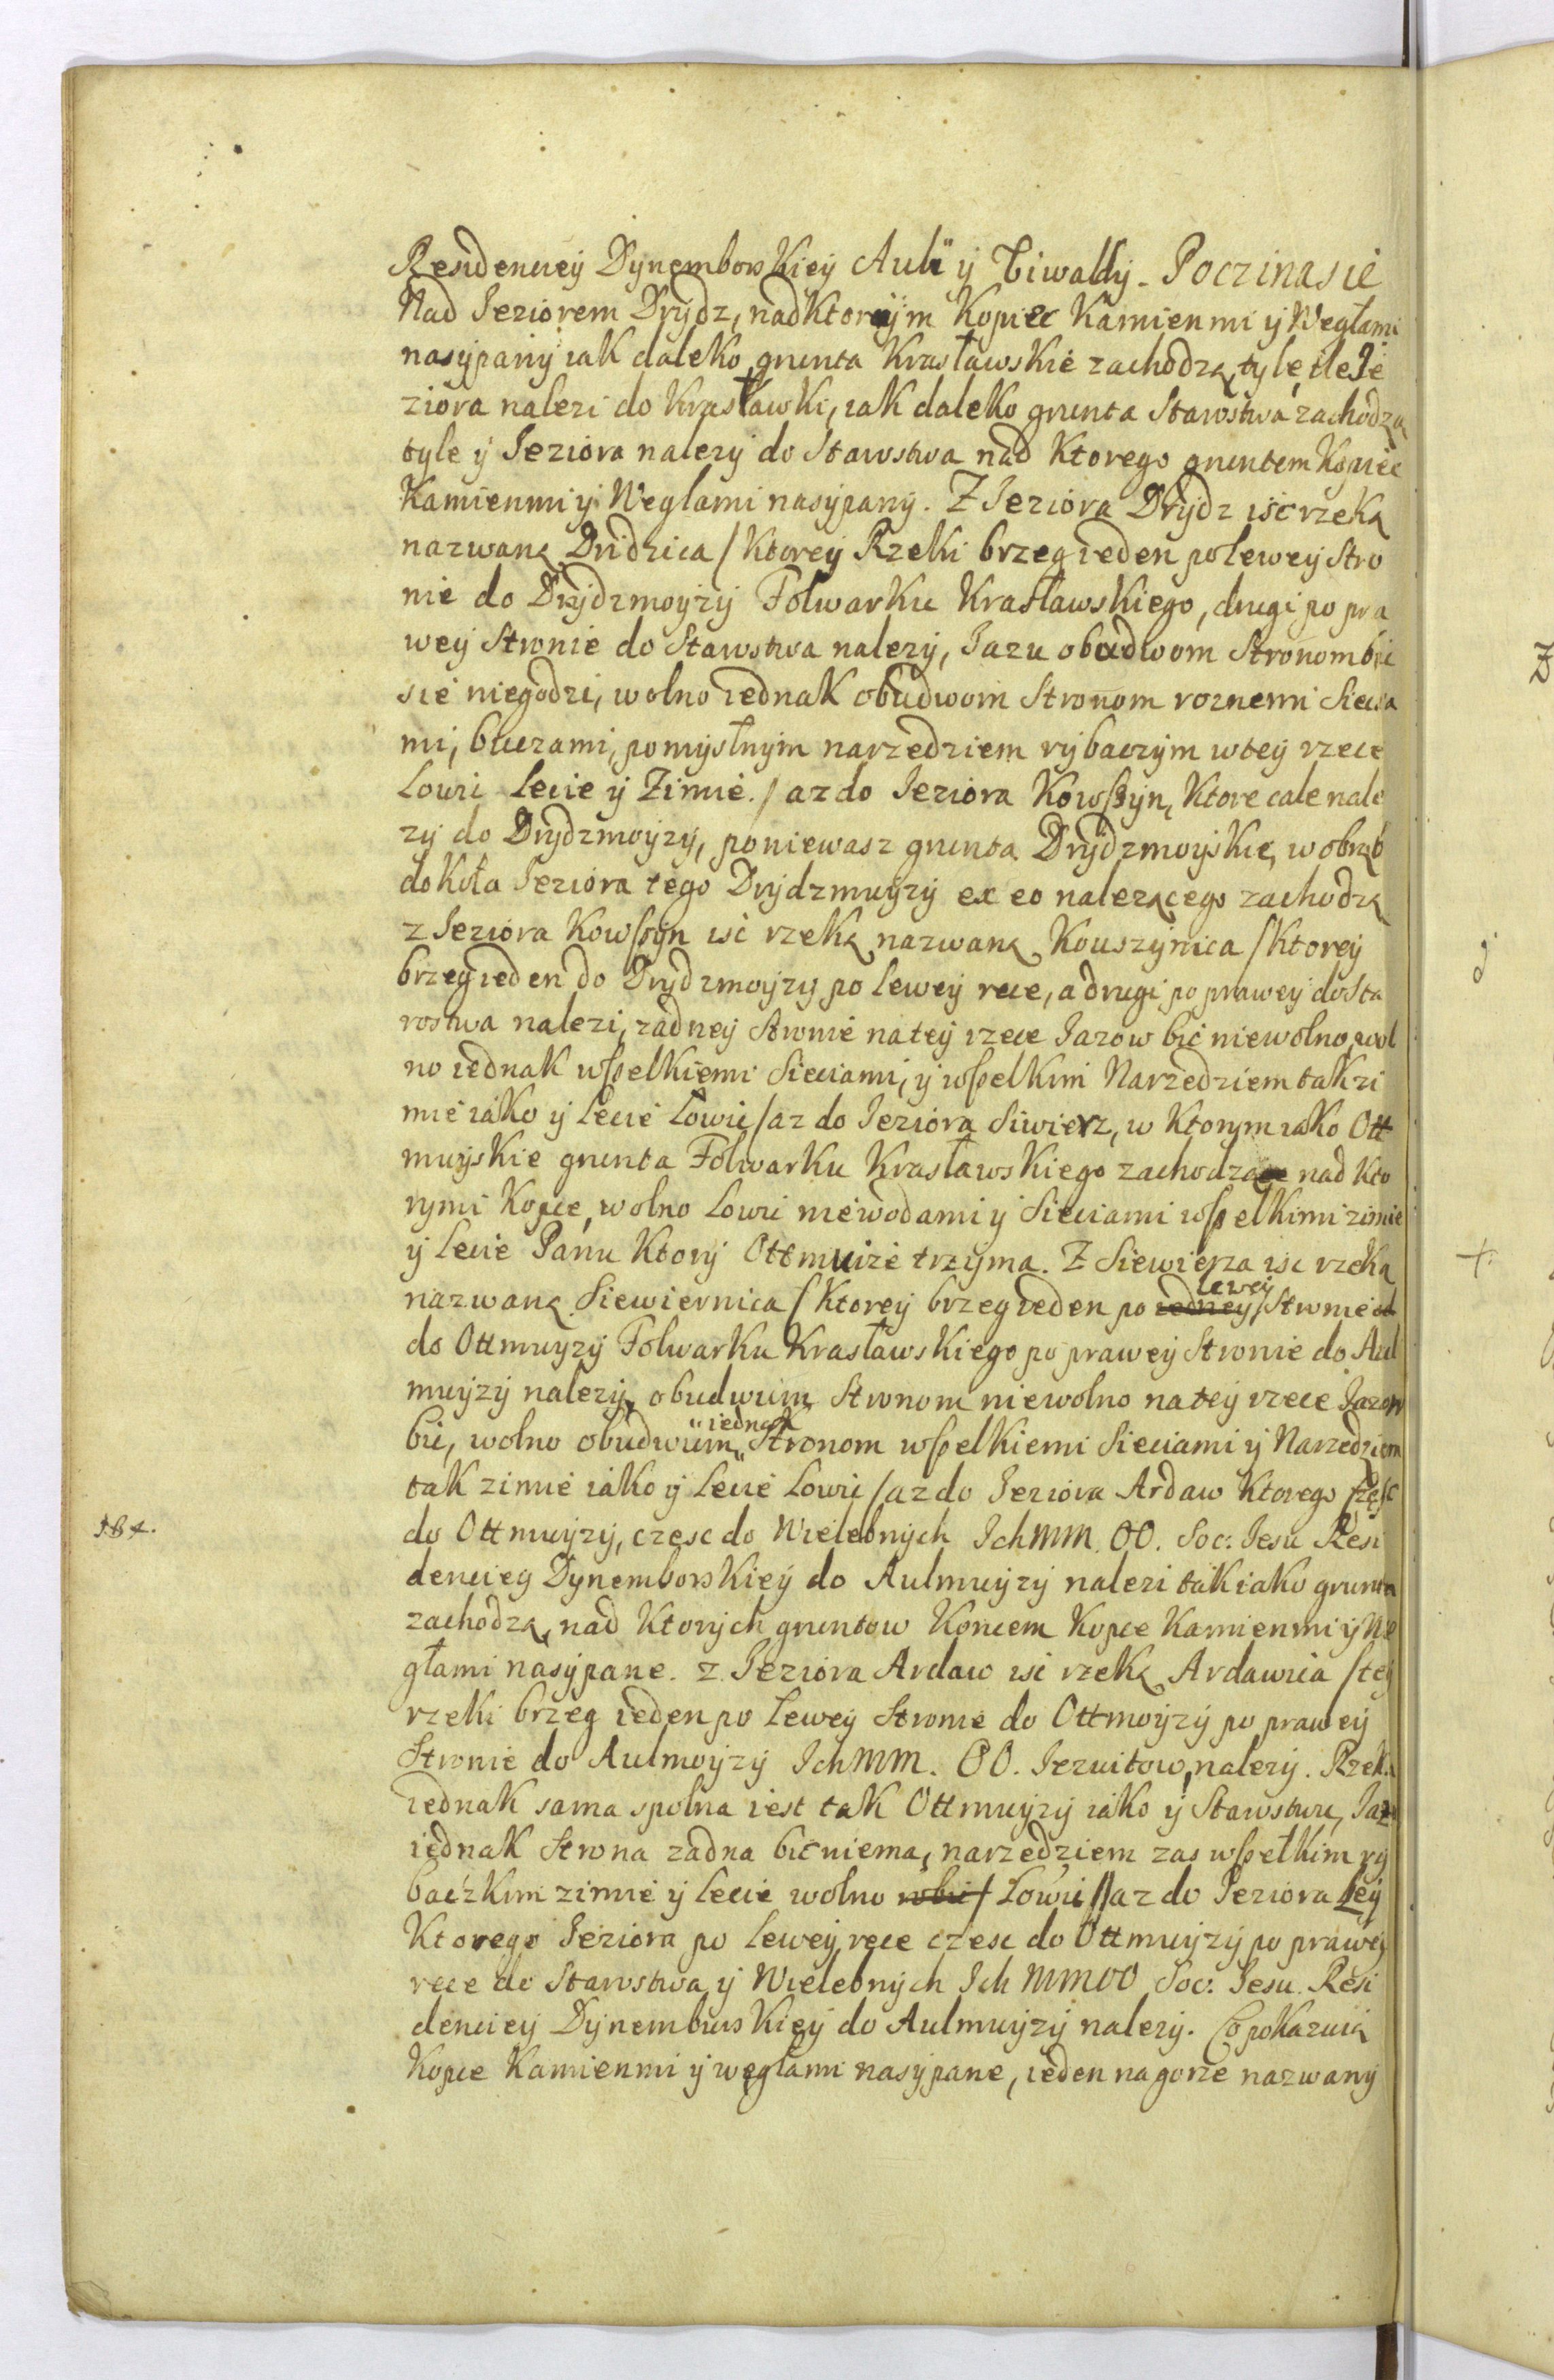 Residenciey Dynemborskiey Auli y Tiwaldy. Poczina sie
Nad Jeziorem Drydz, nad ktorym Kopiec Kamienmi y Weglami
nasypany iak daleko grunta Krasławskie zachodzą, tyle ile Je
ziora nalezi do Krasławki, iak daleko grunta Starostwa zachodzą
tyle y Jeziora nalezy do Starostwa nad Ktorego gruntem Kopiec
Kamienmi y Weglami nasypany. Z Jeziora Drydz isc rzeką
nazwaną Dridzica / Ktorey Rzeki brzeg ieden po lewey Stro
nie do Drydzmoyzy Folwarku Krasławskiego, drugi po pra
wey Stronie do Starostwa nalezy, Jazu obudwom Stronom bic
sie niegodzi, wolno iednak obudwom Stronom roznemi Siecia
mi, buczami, pomysłnym narzedziem rybaczym w tey rzece
Lowic Lecie y Zimie. / az do Jeziora Kowszyn, Ktore cale nale
zy do Drydzmoyzy, poniewasz grunta Drydzmoyskie, w obrąb
dokoła Jeziora tego Drydzmuyzy ex eo nalezącego zachodzą
z Jeziora Kowszyn isc rzeką nazwaną Kouszynica / Ktorey
brzeg ieden do Drydzmoyzy po lewey rece, a drugi po prawey do Sta
rostwa nalezi, zadney Stronie na tey rzece Jazow bic niewolno, wol
no iednak wszelkiemi Sieciami, y wszelkim Narzedziem tak zi
mie iako y Lecie Lowic / az do Jeziora Siwierz, w Ktorym iako Ott
muyskie grunta Folwarku Krasławskiego zachodzą nad Kto
rymi Kopce, wolno Lowic niewodami y Sieciami wszelkimi zimie
y Lecie Panu Ktory Ottmuize trzyma. Z Siewierza isc rzeką
nazwaną Siewiernica / Ktorey brzeg ieden po iedney lewey Stronie
do Ottmuyzy Folwarku Krasławskiego po prawey Stronie do Aul
muyzy nalezy, obudwum Stronom niewolno na tey rzece Jazow
bic, wolno obudwum iednak Stronom wszelkiemi Sieciami y Narzedziem
tak zimie iako y Lecie Lowic / az do Jeziora Ardaw Ktorego częsc
do Ottmuyzy, czesc do Wielebnych Ich MM. OO. Soc: Jesu Resi
denciey Dynemborskiey do Aulmuyzy nalezi tak iako grunta
zachodzą, nad Ktorych gruntow Koncem Kopce Kamienmi y We
głami nasypane. z Jeziora Ardaw isc rzeką Ardawica / tey
rzeki brzeg ieden po Lewey Stronie do Ottmoyzy po prawey
Stronie do Aulmoyzy Ich MM. OO. Jezuitow, nalezy. Rzeka
iednak sama spolna iest tak Ottmuyzy iako y Starostwu, Jazu
iednak Strona zadna bic niema, narzedziem zas wszelkim ry
baczkim zimie y Lecie wolno Lowic // az do Jeziora Ley
Ktorego Jeziora po Lewey rece czesc do Ottmuyzy po prawey
rece do Starostwa y Wielebnych Ich MM OO Soc: Jesu Resi
denciey Dynemburskiey do Aulmuyzy nalezy. Co pokazuią
Kopce Kamienmi y węglami nasypane, ieden na gorze nazwany
184.